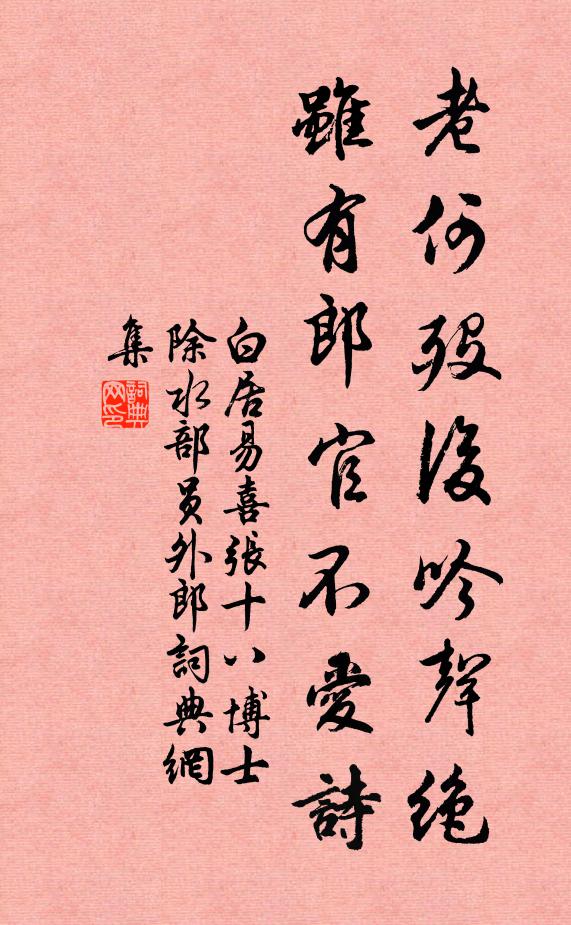 老何歿後吟聲絕
雖有郎官不愛詩
白居易喜張十八博士
除水部員外郎詞典網
集
詞典
网印